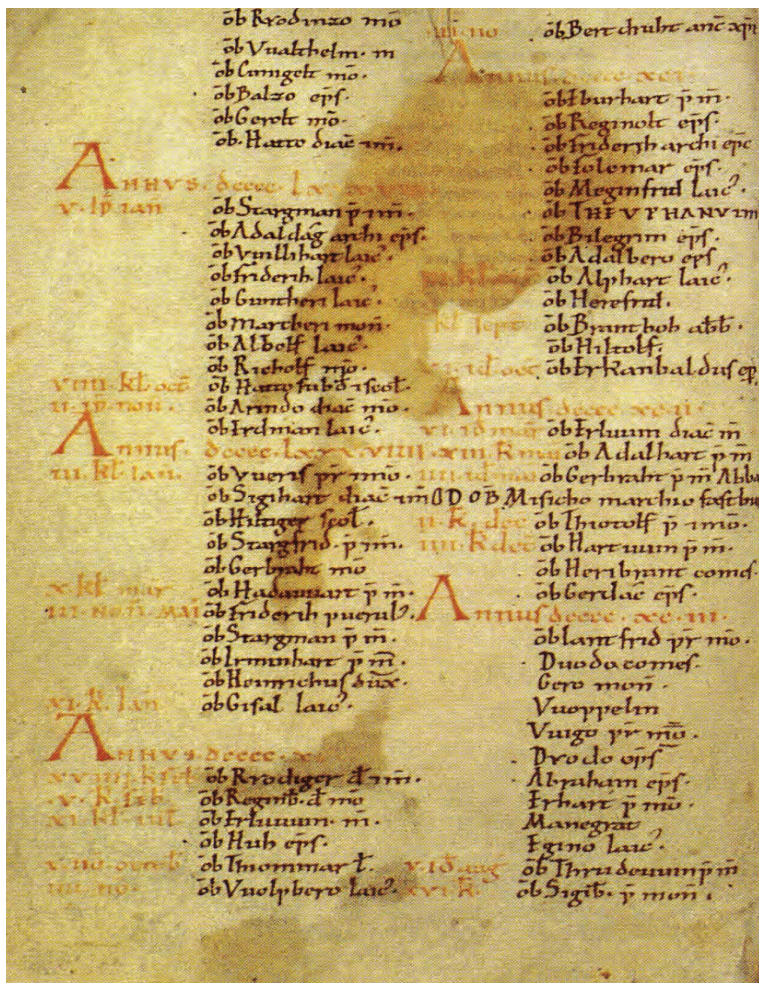 ōb Rrodinzo mō
ōb Vualthelm. m
ōb Cunigelt mō.
ōb Balzo ep̄s.
ōb Gerolt mō.
ōb. Hatto diac̄ m̄.
ANNVS. dcccc. lxx
v. ian̄
ōb Stargman p̄ m̄.
ōb Adaldag archi ep̄s.
ōb Vuillihart laic̉.
ōb Friderih laic̉.
ōb Guntheri laic̉.
ōb Martheri mon̄.
ōb Albolf laic̉.
ōb Richolf mō.
viiii. kl. oct̄ ōb Hatto subd̄ scol̄.
ii. non̄. ōb Arindo diac̄ mō.
ōb Erdman laic̉.
Annus. dcccc. lxxx. viiii.
iii. kl. ian̄. ōb Vueris pr̄ mō.
ōb Sigihart diac̄ m̄
ōb Hiltiger scol̄.
ōb Stargfrid. p̄ m̄.
ōb Gerbraht mō
x. kl. mar̄ ōb Hadauuart p̄ m̄.
iii. Non̄. Mai ōb Friderih puerul̉.
ōb Stargman p̄ m̄.
ōb Irminhart p̄ m̄.
ōb Heinrichus dux̄.
xi. k. ian̄ ōb Gisal laic̉.
ANNVS. dcccc. x
ōb Rrodiger d̄ m̄.
v. k. feb̄ ōb Reginb̄. d̄ mō
xi. kl. iul̄ ōb Erluuum. m̄.
ōb Hub ep̄s.
v. no octob̄ ōb Thiommar l̄.
iiii. no. ōb Vuolpbero laic̉.
no ōb Bertdruht anc̄
Annus. dcccc. xci.
ōb Eburhart p̄ m̄.
ōb Reginolt ep̄s.
ōb Friderih archi ep̄c
ōb Folcmar ep̄s.
ōb Meginfrid laic̉.
ōb THEVPHANV im
ōb Biligrim ep̄s.
ōb Adalbero ep̄s
ōb Alphart laic̉.
ōb Herefrid.
kl. sept̄ ōb Branthoh abb̄.
ōb Hiltolf.
vi. id. oct̄ ōb Erkanbaldus ep̄
Annus dcccc. xc. ii.
vi. id. mar̄ ōb Erluuin diac̄ m̄
xiii. k. mai ōb Adalhart p̄ m̄
iiii. id. ōb Gerbraht p̄ m̄ Abba
OB Misicho marchio
ii. k. dec̄ ōb Thiotolf p̄ mō.
iiii. k dec̄ ōb Hartuuin p̄ m̄.
ōb Heribrant comes.
ōb Gerlac̄ ep̄s.
Annus dcccc. xc. iii.
ōb lantfrid pr̄ mō.
Duodo comes.
Gero mon̄.
Vuoppelin
Vuigo pr̄ mō.
Drodo ep̄s
Abraham ep̄s.
Erhart p̄ mō.
Manegrat
Egino laic̉.
v. id̄ aug ōb Thrudeuuin p̄ m̄
xvi. k. ōb Sigib̄. p̄ mon̄.